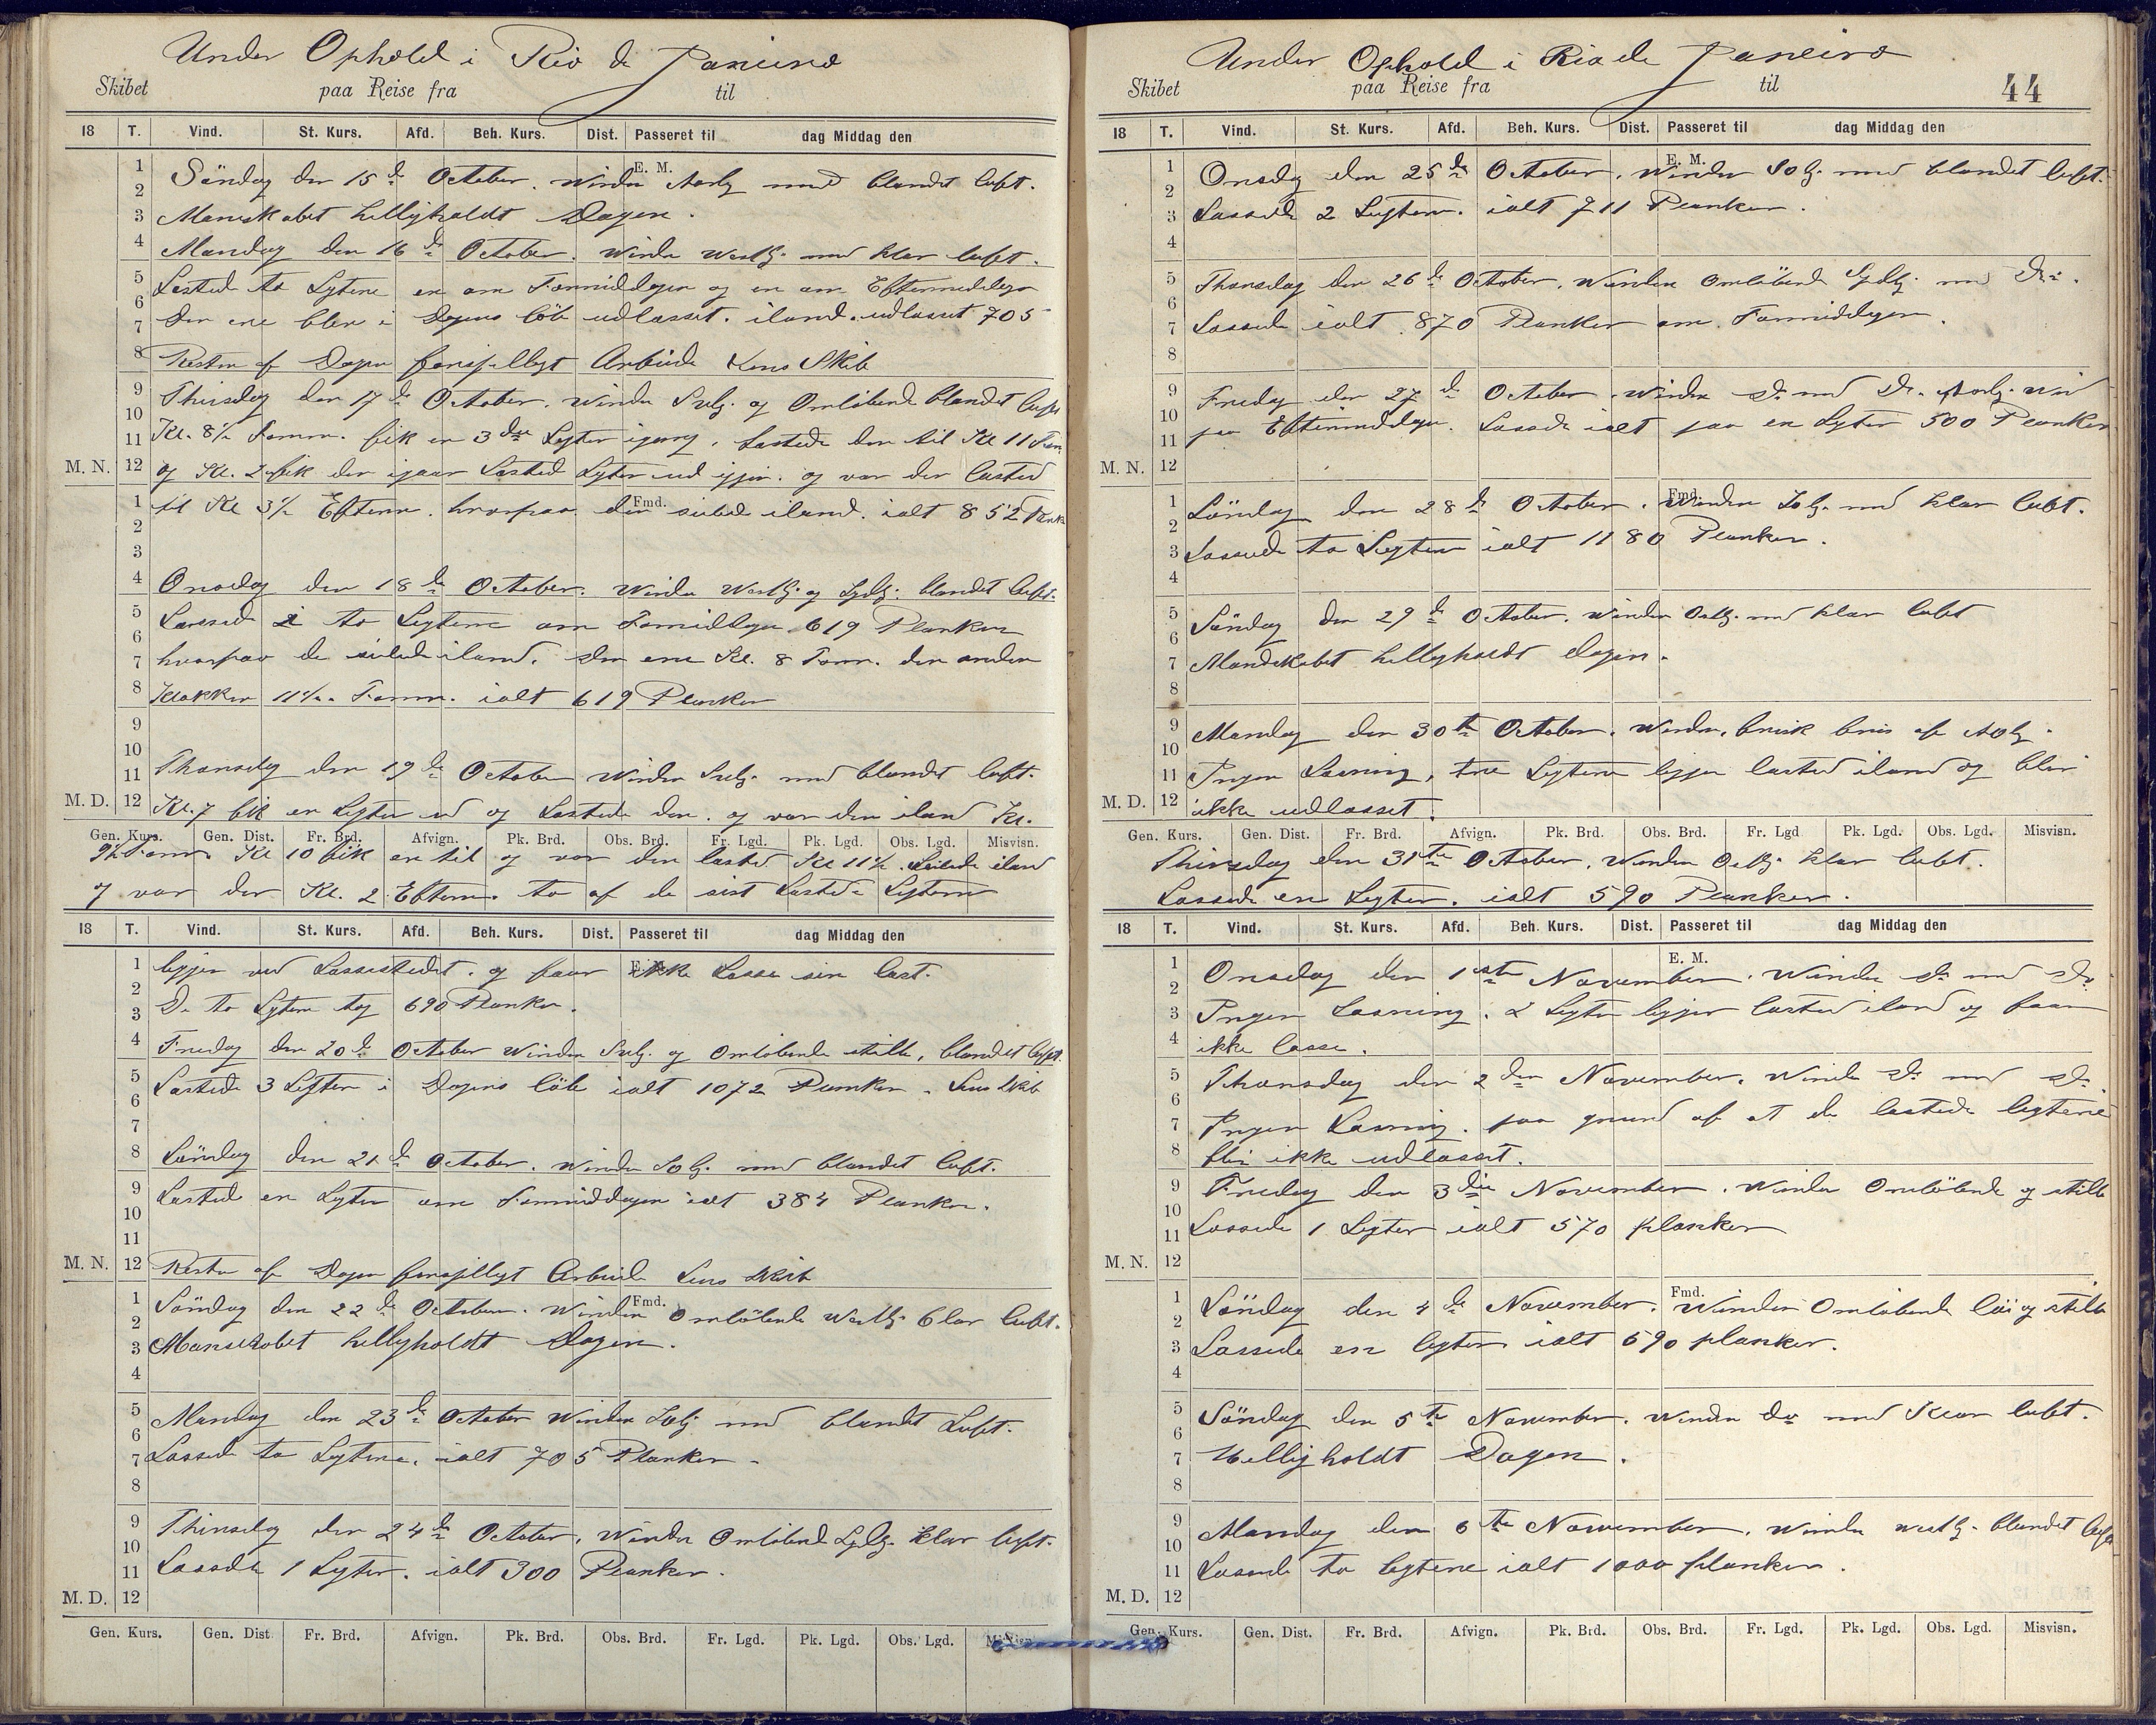 Under Ophold i Rio de Janeiro
Skibet paa Reise fra til
18 T. Vind. St. Kurs. Afd. Beh. Kurs. Dist. Passeret til dag Middag den
E. M.
1 Söndag den 15de October. Winden med blandet luft.
2
3 Manskabet helligholdt Dagen.
4 Mandag den 16de October. Winden Westlg. med klar luft.
5 Lasted to Lytere en om Formiddagen og en om Eftermiddagen
6
7 den ene blev i Dagens löb udlosset. iland. udlosset 705
8 Resten af Dagen forskjelligt Arbeide Lens Skib
9 Thirsdag den 17de October. Winden Sydlg. og Omlöbende blandet luft
10
11 Kl. 8½ Form. fik en 3die Lygter igang. Lastede den til Kl 11 Form.
M. N. 12 og Kl. 2 fik den igaar Lasted Lygter ud igjen. og var den lasted
Fmd.
1 til Kl 3½ Efterm. hvorpaa den seilede iland. ialt 852 Planker
2
3
4 Onsdag den 18de October. Winden Westlg. og Sydlg. blandet luft.
5 to Legtere om Formiddagen 619 Planker
6
7 hvorpaa de seilede iland. den ene Kl. 8 Form. den anden
8 Klokken 11½ Form. ialt 619 Planker
9
10
11 Thorsdag den 19de October Winden Sydlg. med blandet luft.
M. D. 12 Kl. 7 fik en Legter ud og Lastede den. og var den iland Kl.
Gen. Kurs. Gen. Dist. Fr. Brd. Afvign. Pk. Brd. Obs. Brd. Fr. Lgd. Pk. Lgd. Obs. Lgd. Misvisn.
9½ Form. Kl 10 fik en til og var den lasted Kl 11½. Seilede iland
og var der Kl. 2 Efterm. to af de sist Lastede Legtere
18 T. Vind. St. Kurs. Afd. Beh. Kurs. Dist. Passeret til dag Middag den
1 ligger ved Lossestedet. og faar ikke Losse sin last.
2
3 De to Lytere tog 690 Planker.
4 Fredag den 20de October Winden Sydlg. og Omlöbende stille, blandet luft.
5 Lastede 3 Legtere i Dagens löb ialt 1072 Planker. Lens Skib
6
7
8 Löndag den 21de October. Winden SOlg. med blandet luft.
9 Lastede en Legter om Formiddagen ialt 384 Planker.
10
11
M. N. 12 Resten af Dagen forskjelligt Arbeide Lens Skib
Fmd.
1 Söndag den 22de October. Winden Omlöbende Westlg. klar luft.
2
3 Manskabet helligholdt Dagen.
4
5 Mandag den 23de October Winden SOlg. med blandet Luft.
6
7 Lossede to Lytere. ialt 705 Planker.
8
9 Thirsdag den 24de October, Winden Omlöbende Sydlg. klar luft.
10
11 Lossede 1 Lygter. ialt 300 Planker.
M. D. 12
Gen. Kurs. Gen. Dist. Fr. Brd. Afvign. Pk. Brd. Obs. Brd. Fr. Lgd. Pk. Lgd. Obs. Lgd. Misvisn.
Under Ophold i Rio de Janeiro
Skibet paa Reise fra til 44
18 T. Vind. St. Kurs. Afd. Beh. Kurs. Dist. Passeret til dag Middag den
E. M.
1 Onsdag den 25de October. Winden SOlg. med blandet luft.
2
3 Lossede 2 Legtere. ialt 711 Planker.
4
5 Thorsdag den 26de October. Winden Omlöbende Sydlg. med Do.
6
7 Lossede ialt 870 Planker om Formiddagen.
8
9 Fredag den 27de October. Winden Do med Do. vind
10 paa Eftermiddagen. Lossede ialt paa en Lygter 500 Planker
11
M. N. 12
Fmd.
1 Löndag den 28de October. Winden SOlg. med klar luft.
2
3 Lossede to Legtere ialt 1180 Planker.
4
5 Söndag den 29de October. Winden Ostlg. med klar luft
6
7 Mandskabet helligholdt dagen.
8
9 Mandag den 30te October. Winden, frisk bris af
10
11 Ingen Losning, tre Legtere ligger lasted iland og blir
M. D. 12 ikke udlosset.
Gen. Kurs. Gen. Dist. Fr. Brd. Afvign. Pk. Brd. Obs. Brd. Fr. Lgd Pk. Lgd. Obs. Lgd. Misvisn.
Thirsdag den 31te October, Winden Ostlg. klar luft.
Lossede en Legter. ialt 590 Planker.
18 T. Vind. St. Kurs. Afd. Beh. Kurs. Dist. Passeret til dag Middag den
E. M.
1 Onsdag den 1ste November. Winden Do med Do
2
3 Ingen Losning. 2 Legter ligger lasted iland og faar
4 ikke losse.
5 Thorsdag den 2den November. Winden Do med Do.
6
7 Ingen Losning. paa grund af at de lastede legtere
8 blir ikke udlosset.
9 Fredag den 3die November. Winden Omlöbende og stille
10
11 Lossede 1 Legter ialt 570 planker
M. N. 12
Fmd.
1 Löndag den 4de November. Winden Omlöbende löi og stille
2
3 Lossede en legter ialt 690 planker.
4
5 Söndag den 5te November. Winden do med Klar luft.
6
7 Helligholdt Dagen.
8
9 Mandag den 6te November. Winden westlg. blandet luft
10
11 Lossede to legtere ialt 1000 planker.
M. D. 12
Gen. Kurs. Gen. Dist. Fr. Brd. Afvign. Pk. Brd. Obs. Brd. Fr. Lgd. Pk. Lgd. Obs. Lgd. Misvisn.